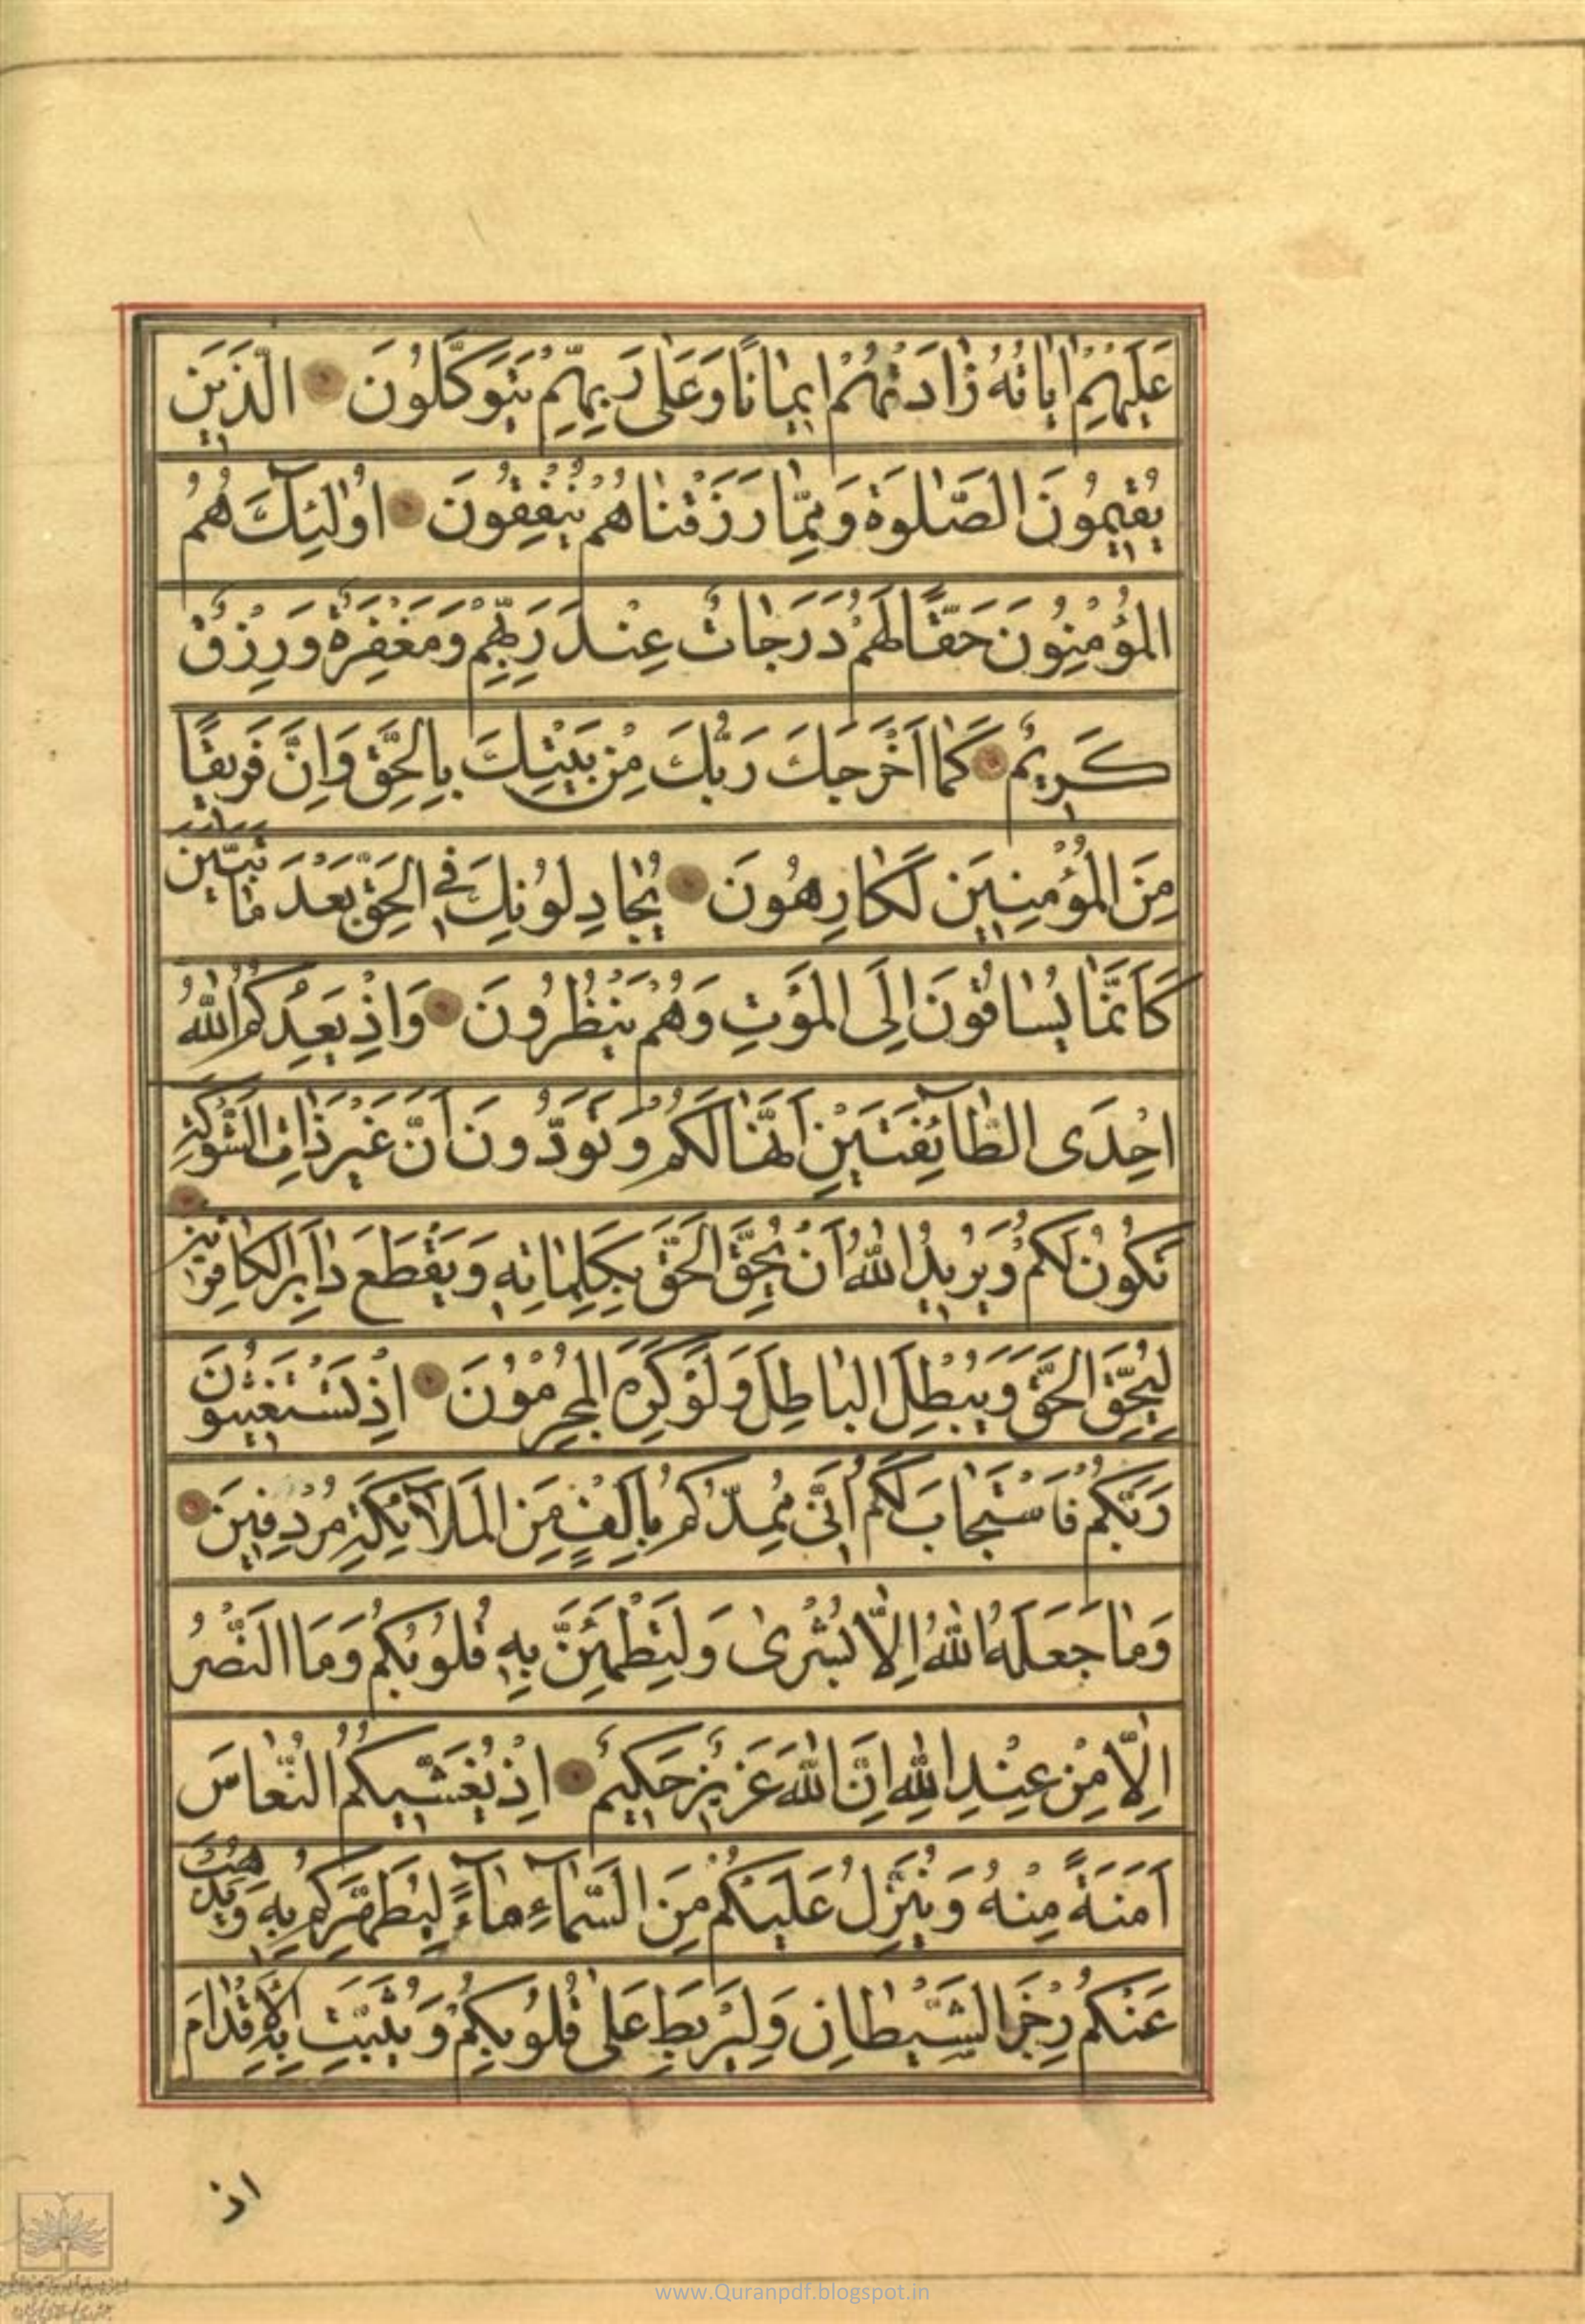 عَلَيْهِمْ اٰيٰاتُهُ زٰادَتْهُمْ اِيمٰانًا وَعَلٰى رَبِّهِمْ يَتَوَكَّلُونَ الَّذِينَ
يُقِيمُونَ الصَّلٰوةَ وَمِمّٰا رَزَقْنٰاهُمْ يُنْفِقُونَ اُولٰئِكَ هُمُ
الْمُؤْمِنُونَ حَقًّا لَهُمْ دَرَجٰاتٌ عِنْدَ رَبِّهِمْ وَمَغْفِرَةٌ وَرِزْقٌ
كَرِيمٌ كَمٰا اَخْرَجَكَ رَبُّكَ مِنْ بَيْتِكَ بِالْحَقِّ وَاِنَّ فَرِيقًا
مِنَ الْمُؤْمِنِينَ لَكٰارِهُونَ يُجٰادِلُونَكَ فِي الْحَقِّ بَعْدَ مٰا تَبَيَّنَ
كَاَنَّمٰا يُسٰاقُونَ اِلَى الْمَوْتِ وَهُمْ يَنْظُرُونَ وَاِذْ يَعِدُكُمُ اللّٰهُ
اِحْدَى الطّٰائِفَتَيْنِ اَنَّهٰا لَكُمْ وَتَوَدُّونَ اَنَّ غَيْرَ ذٰاتِ الشَّوْكَةِ
تَكُونُ لَكُمْ وَيُرِيدُ اللّٰهُ اَنْ يُحِقَّ الْحَقَّ بِكَلِمٰاتِهِ وَيَقْطَعَ دٰابِرَ الْكٰافِرِينَ
لِيُحِقَّ الْحَقَّ وَيُبْطِلَ الْبٰاطِلَ وَلَوْ كَرِهَ الْمُجْرِمُونَ اِذْ تَسْتَغِيثُونَ
رَبَّكُمْ فَاسْتَجٰابَ لَكُمْ اَنِّي مُمِدُّكُمْ بِاَلْفٍ مِنَ الْمَلٰٓائِكَةِ مُرْدِفِينَ
وَمٰا جَعَلَهُ اللّٰهُ اِلّٰا بُشْرٰى وَلِتَطْمَئِنَّ بِهِ قُلُوبُكُمْ وَمَا النَّصْرُ
اِلّٰا مِنْ عِنْدِ اللّٰهِ اِنَّ اللّٰهَ عَزِيزٌ حَكِيمٌ اِذْ يُغَشِّيكُمُ النُّعٰاسَ
اَمَنَةً مِنْهُ وَيُنَزِّلُ عَلَيْكُمْ مِنَ السَّمٰٓاءِ مٰٓاءً لِيُطَهِّرَكُمْ بِهِ وَيُذْهِبَ
عَنْكُمْ رِجْزَ الشَّيْطٰانِ وَلِيَرْبِطَ عَلٰى قُلُوبِكُمْ وَيُثَبِّتَ بِهِ الْاَقْدٰامَ
اذ
www.Quranpdf.blogspot.in